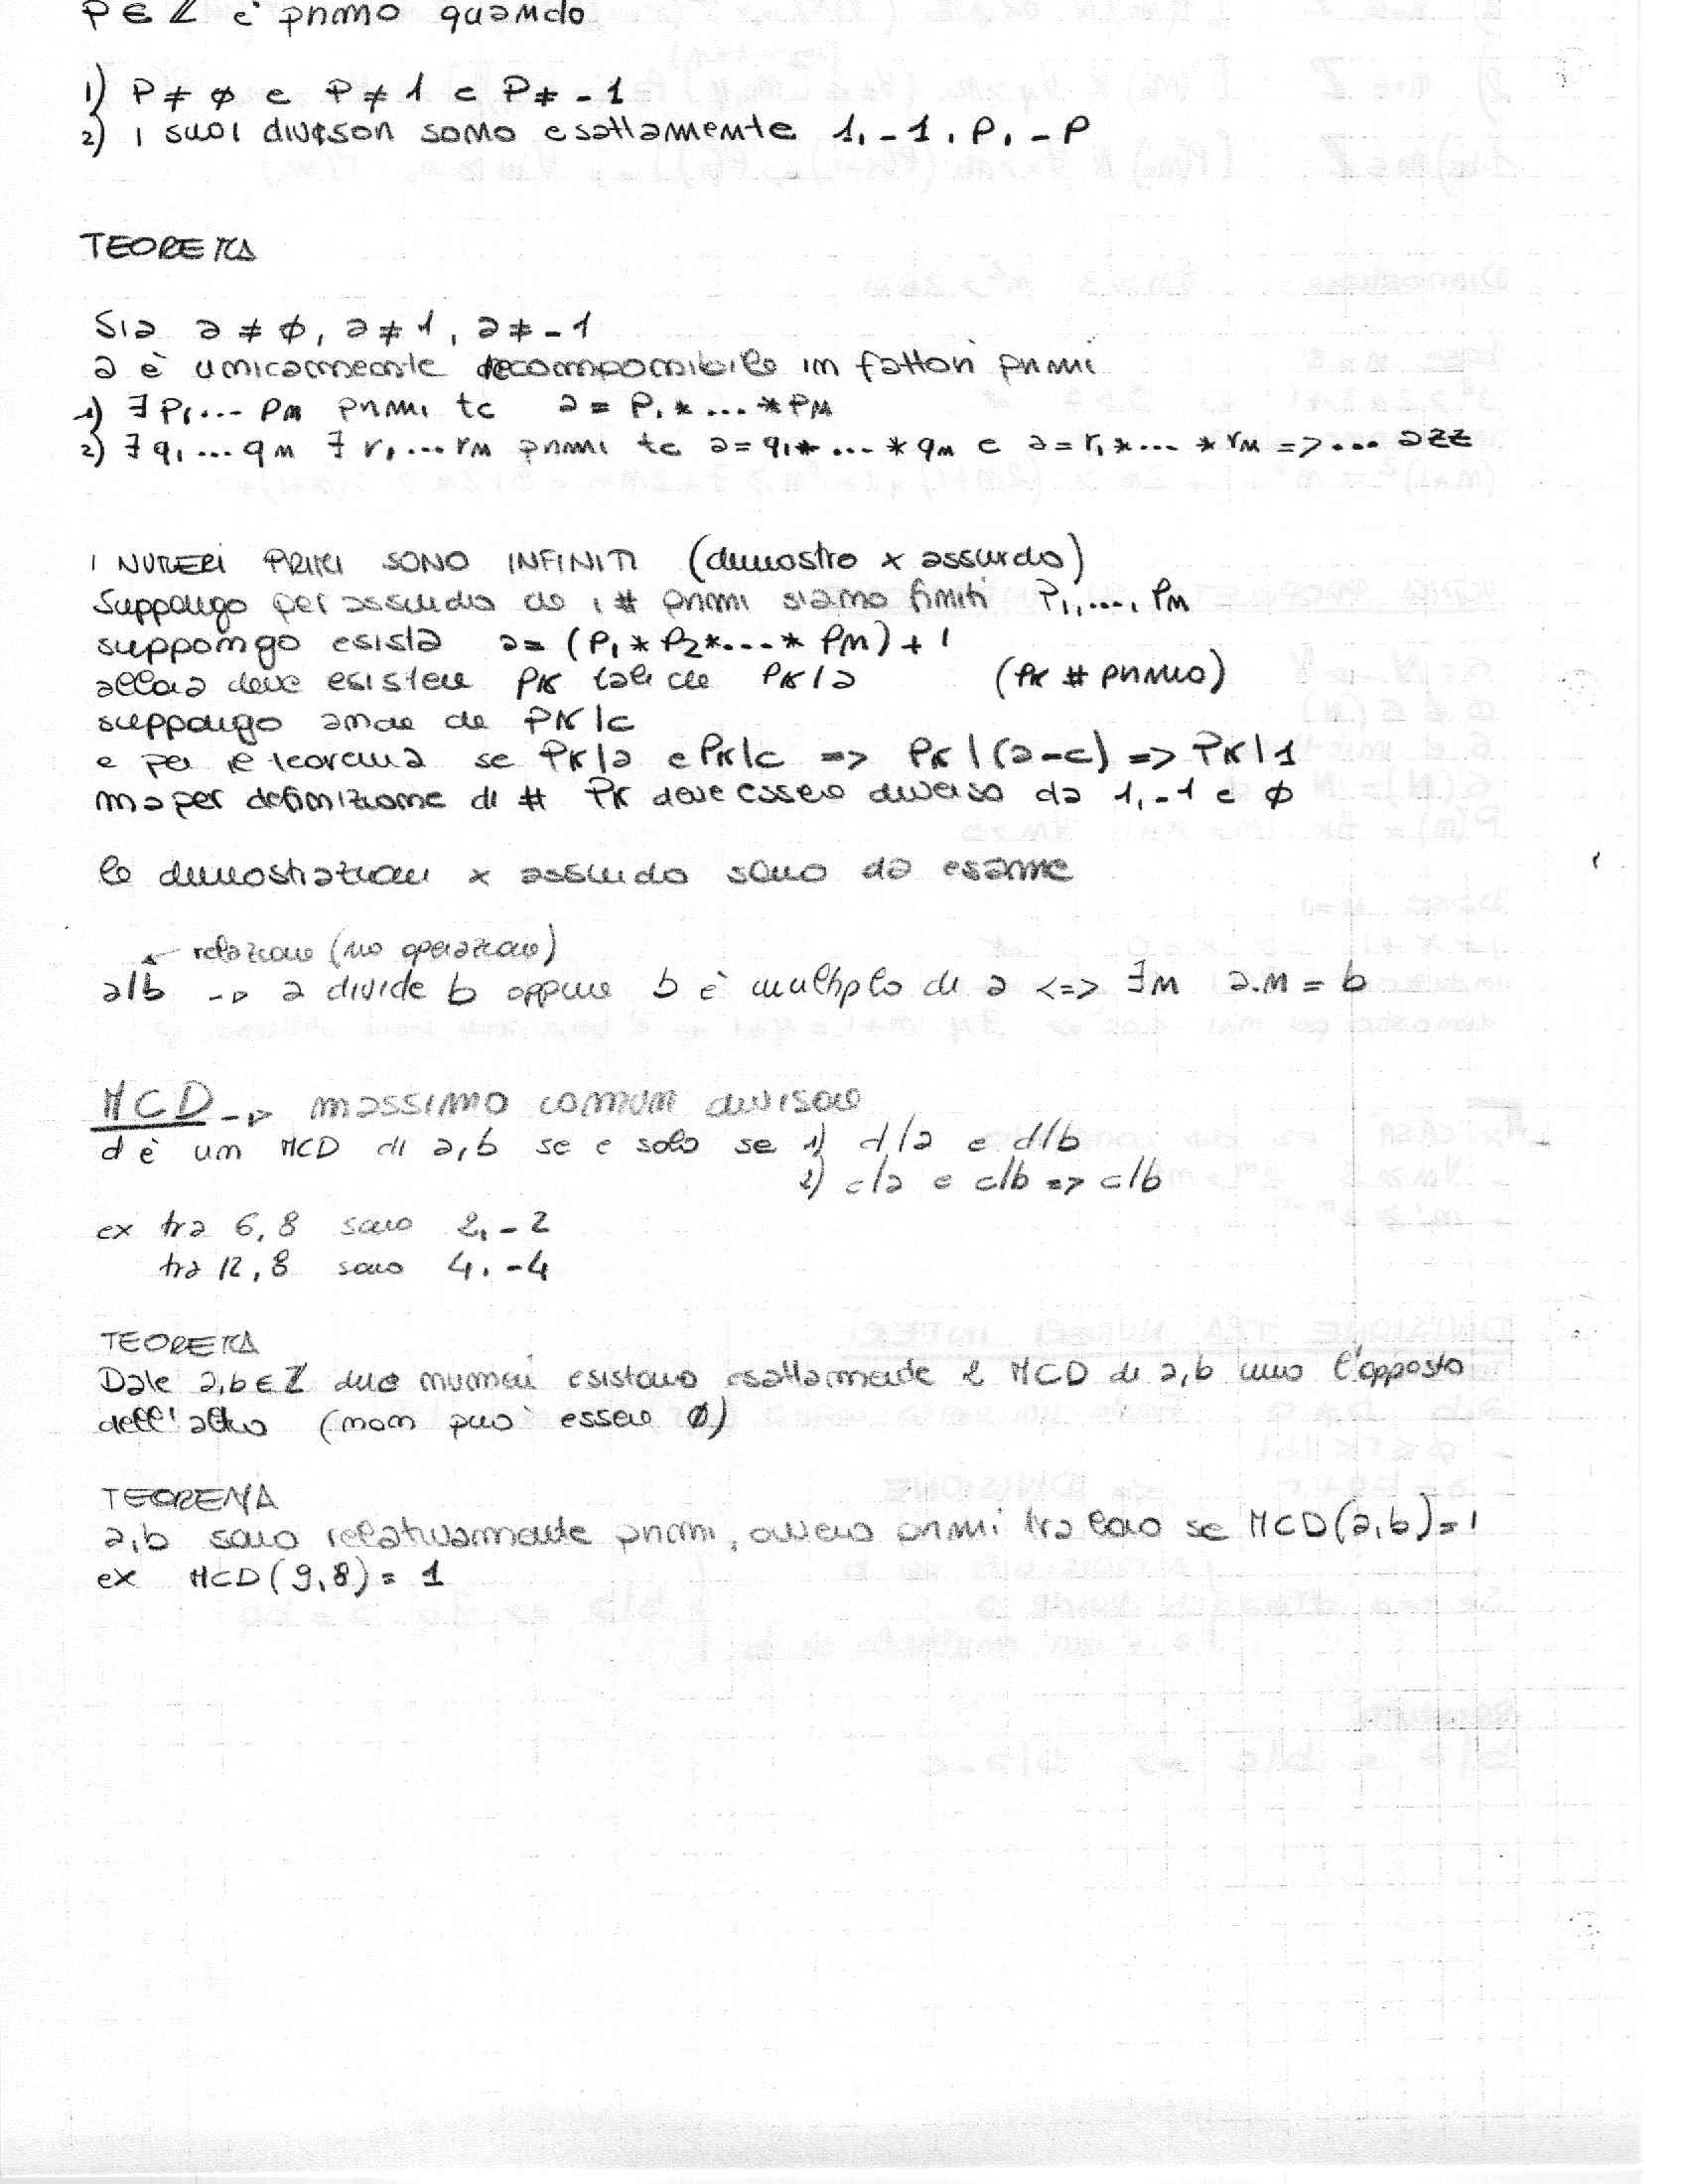 P ∈ Z è primo quando
1) P ≠ ø e P ≠ 1 e P ≠ -1
2) i suoi divisori sono esattamente 1, -1, P, -P
TEOREMA
Sia a ≠ ø, a ≠ 1, a ≠ -1
a è unicamente decomponibile in fattori primi
1) ∃ P1 ... Pn primi tc a = P1 * ... * Pn
2) ∃ q1 ... qn ∃ r1 ... rn primi tc a = q1 * ... * qn e a = r1 * ... * rn => ...
I NUMERI PRIMI SONO INFINITI (dimostro x assurdo)
Suppongo per assurdo che i # primi siano finiti P1, ..., Pn
suppongo esista a = (P1 * P2 * ... * Pn) + 1
allora deve esistere PK tale che PK/a (PK # primo)
suppongo anche che PK|c
e per il teorema se PK/a e PK|c => PK | (a-c) => PK | 1
ma per definizione di # PK deve essere diverso da 1, -1 e ø
le dimostrazioni x assurdo sono da esame
relazione (no operazione)
a|b -> a divide b oppure b è multiplo di a <=> ∃n a.n = b
MCD -> massimo comun divisore
d è un MCD di a,b se e solo se 1) d/a e d/b
2) c/a e c/b => c/b
ex tra 6,8 sono 2, -2
tra 12,8 sono 4, -4
TEOREMA
Date a,b ∈ Z due numeri esistono esattamente 2 MCD di a,b uno l'opposto
dell'altro (non può essere ø)
TEOREMA
a,b sono relativamente primi, ovvero primi tra loro se MCD(a,b) = 1
ex MCD(9,8) = 1